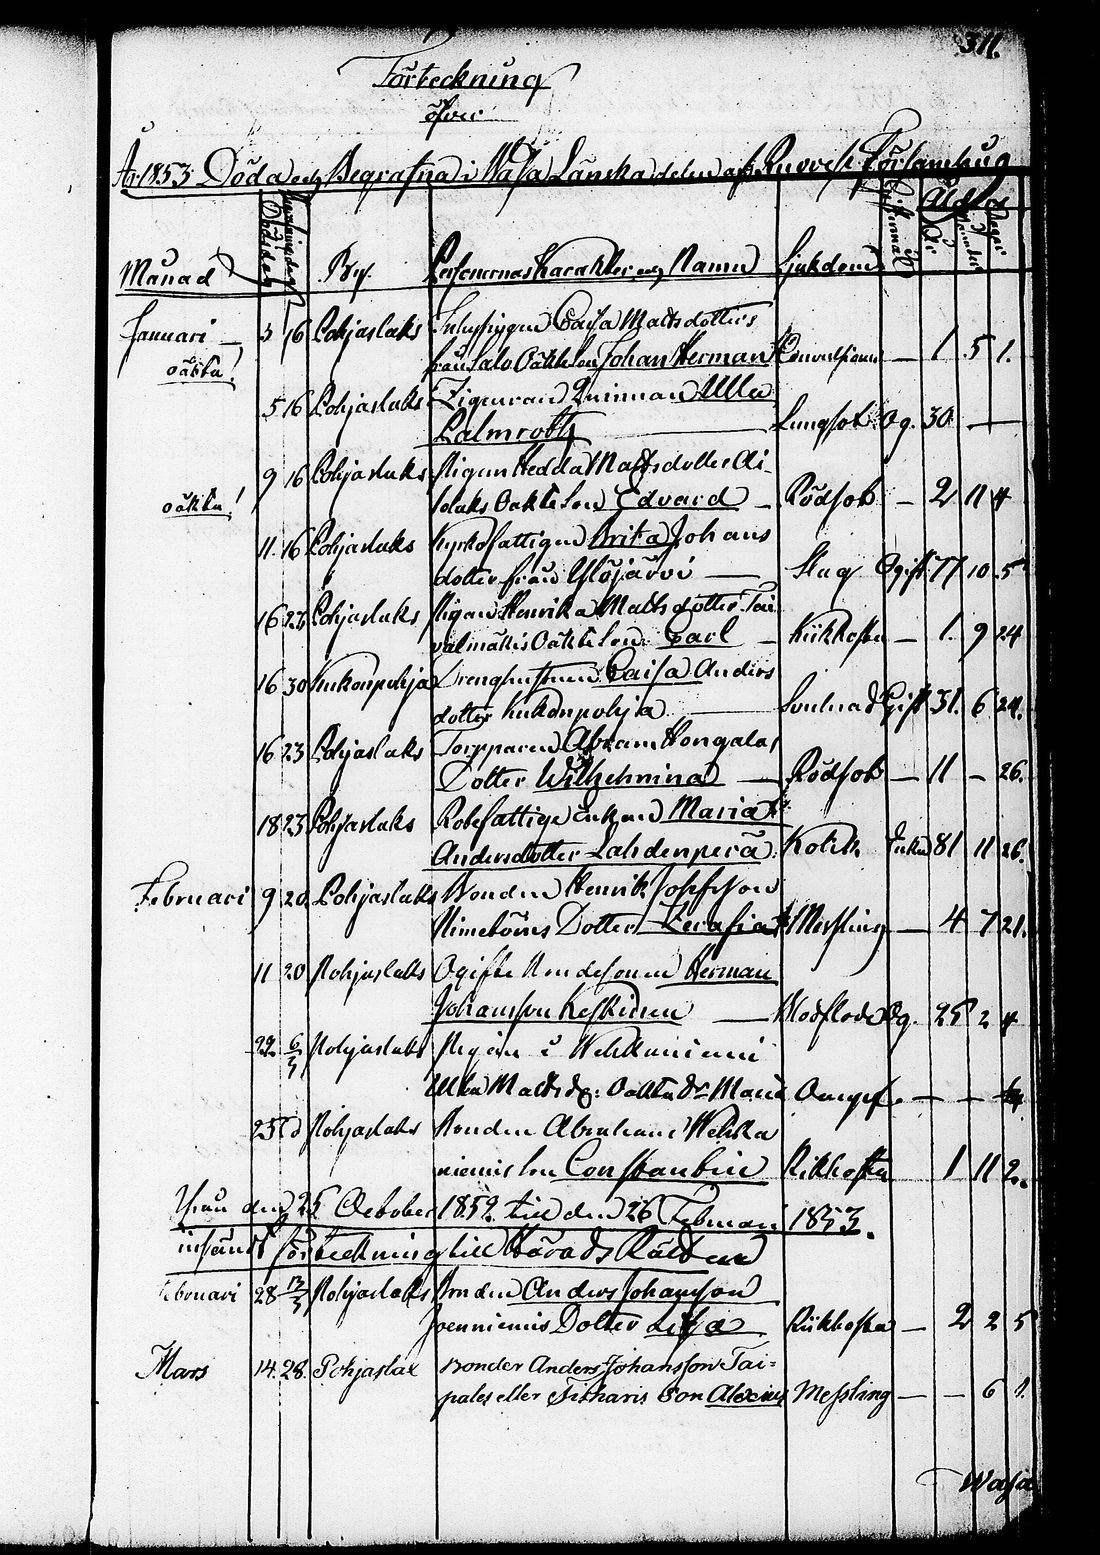 311.
Förteckning
öfver
År 1853 Döda och Begrafna i Wasa Länska delen af Ruovesi Församling
Månad Dödsdag Begrafningsdag By. Personernas Karakter och Namn Sjukdom Ålder År Månader Dagar
Januari 3 16 Pohjaslaks Inhysispigan Caisa Mattsdotters
oäkta! från Salo Oäkta Son Johan Herman Convulsioner — 1 5 1.
5 16 Pohjaslaks Zigenaren Qvinnan Ulla
Palmroth — Lungsot Og. 30 — —
9 16 Pohjaslaks Pigan Hedda Mattsdotter
oäkta! Oäkta Son Edvard — Rödsot — 2 11 4
11. 16 Pohjaslaks Kyrkofattigen Brita Johans
dotter från Ylöjärvi — Slag Ogift 77 10 5
16 23 Pohjaslaks Pigan Henrika Matts dotter Tai
valmäkis Oäkta Son Carl — Kikhosta — 1. 9 24
16 30 Kukonpohja Drenghustrun Caisa Anders
dotter Kukonpohja — Gift 31. 6 24.
16 23 Pohjaslaks Torpparen Abram Hongalas
Dotter Wilhelmina — Rödsot — 11 — 26.
18 23 Pohjaslaks Rotefattige Enkan Maria
Andersdotter Lahdenperä Kolik Enka 81 11 26.
Februari 9 20 Pohjaslaks Bonden Henrik Josefsson
Dotter Serafia Messling — 4 7 21.
11 20 Pohjaslaks Ogifte Bondesonen Herman
Johansson Keskinen — Blodflode Og. 25 2 4
22 6/3 Pohjaslaks Pigan i Wehkaniemi
Ulla Matts dr: Oäkta Dr Maria — —
25 d Pohjaslaks Bonden Abraham Wehka
niemis Son Constantin Kikhosta 1 11 2.
Ifrån den 25 October 1852 till den 26 Februari 1853.
insändt förteckning till Härads Rätten
Februari 28 13/3 Pohjaslaks Bonden Anders Johansson
Joenniemis Dotter Lisa Kikhosta — 2 2 5
Mars 14. 28. Pohjaslax Bonden Anders Johansson Tai=
pales eller Son Alexius Messling — — 6 1.
Wasa